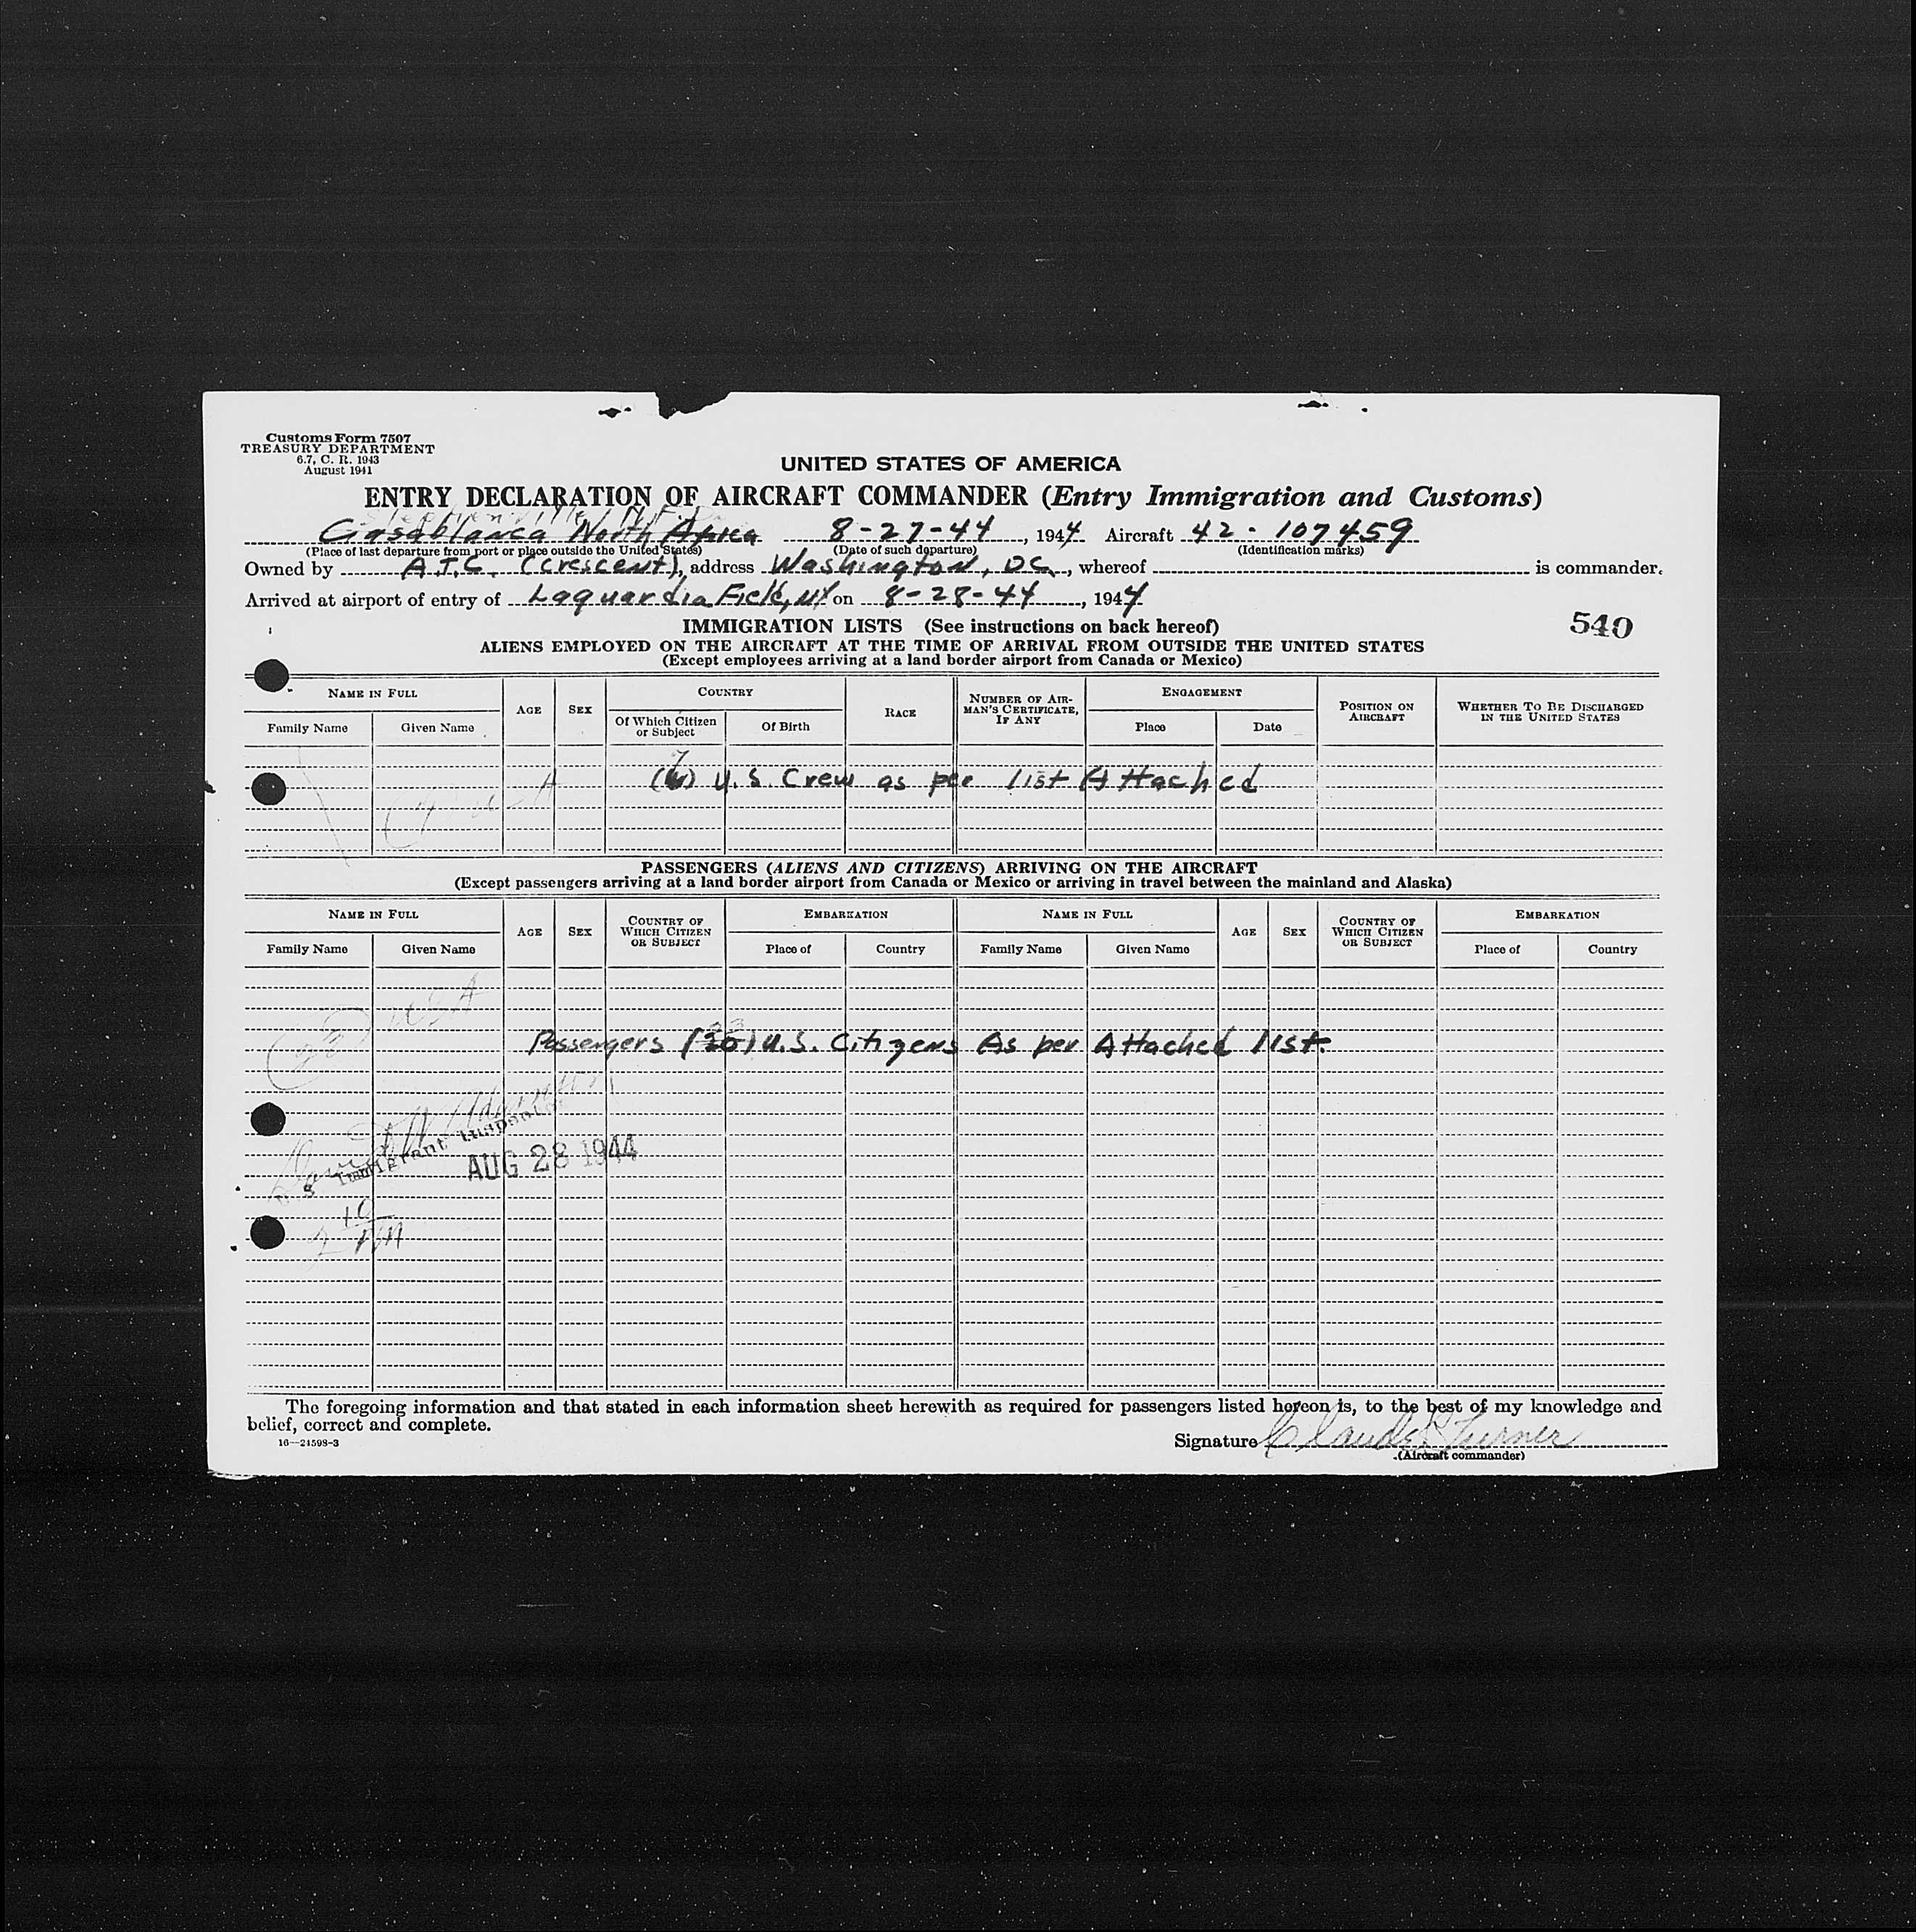 Customs Form 7507
TREASURY DEPARTMENT
6.7, C. R. 1943
August 1941
UNITED STATES OF AMERICA
ENTRY DECLARATION OF AIRCRAFT COMMANDER (Entry Immigration and Customs)
Casablanca North Africa 8-27-44, 1944 Aircraft 42-107459
(Place of last departure from port or place outside the United States) (Date of such departure) (Identification marks)
Owned by A.T.C. (Crescent), address Washington, DC, whereof is commander.
Arrived at airport of entry of Laguardia Field, NY on 8-28-44, 1944
540
IMMIGRATION LISTS (See instructions on back hereof)
ALIENS EMPLOYED ON THE AIRCRAFT AT THE TIME OF ARRIVAL FROM OUTSIDE THE UNITED STATES
(Except employees arriving at a land border airport from Canada or Mexico)
NAME IN FULL AGE SEX COUNTRY RACE NUMBER OF AIRMAN'S CERTIFICATE, IF ANY ENGAGEMENT POSITION ON AIRCRAFT WHETHER TO BE DISCHARGED IN THE UNITED STATES
Family Name Given Name Of Which Citizen or Subject Of Birth Place Date
7
U.S Crew as per list Attached
PASSENGERS (ALIENS AND CITIZENS) ARRIVING ON THE AIRCRAFT
(Except passengers arriving at a land border airport from Canada or Mexico or arriving in travel between the mainland and Alaska)
NAME IN FULL AGE SEX COUNTRY OF WHICH CITIZEN OR SUBJECT EMBARKATION NAME IN FULL AGE SEX COUNTRY OF WHICH CITIZEN OR SUBJECT EMBARKATION
Family Name Given Name Place of Country Family Name Given Name Place of Country
(23) USA
23
Passengers (20) U.S. Citizens As per Attached list.
U S Immigrant Inspector
AUG 28 1944
The foregoing information and that stated in each information sheet herewith as required for passengers listed hereon is, to the best of my knowledge and
belief, correct and complete.
16—24598-3
Signature Claude R Turner
(Aircraft commander)